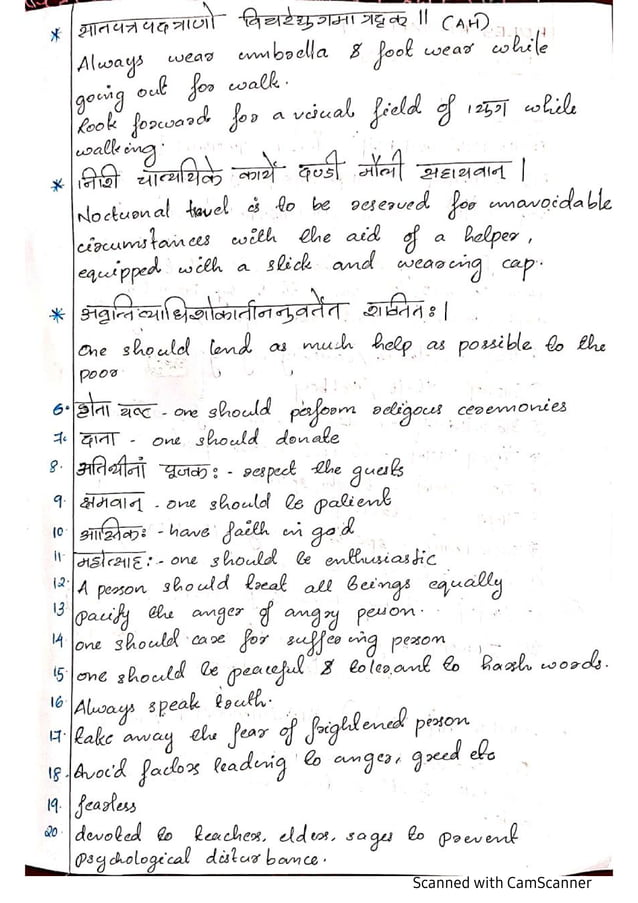 * सातपत्रपदत्राणो विचरेद्युगमात्रदृक् ॥ (AH)
Always wear umbrella & foot wear while
going out for walk.
Look forward for a visual field of 1 युग while
walking.
* निशि चात्ययिके कार्ये दण्डी मौली सहायवान् |
Nocturnal travel is to be reserved for unavoidable
circumstances with the aid of a helper,
equipped with a stick and wearing cap.
* अवृत्तिव्याधिशोकार्ताननुवर्तेत शक्तितः |
One should lend as much help as possible to the
poor
6. होता यष्ट - one should perform religous ceremonies
7. दाता - one should donate
8. अतिथीनां पूजकः - respect the guests
9. क्षमवान् - one should be patient
10. आस्तिकः - have faith in god
11. महोत्साहः - one should be enthusiastic
12. A person should treat all beings equally
13. pacify the anger of angry person.
14. one should care for suffering person
15. one should be peaceful & tolerant to harsh words.
16. Always speak truth.
17. take away the fear of frightened person
18. Avoid factors leading to anger, greed etc
19. fearless
20. devoted to teacher, elders, sages to prevent
psychological disturbance.
Scanned with CamScanner